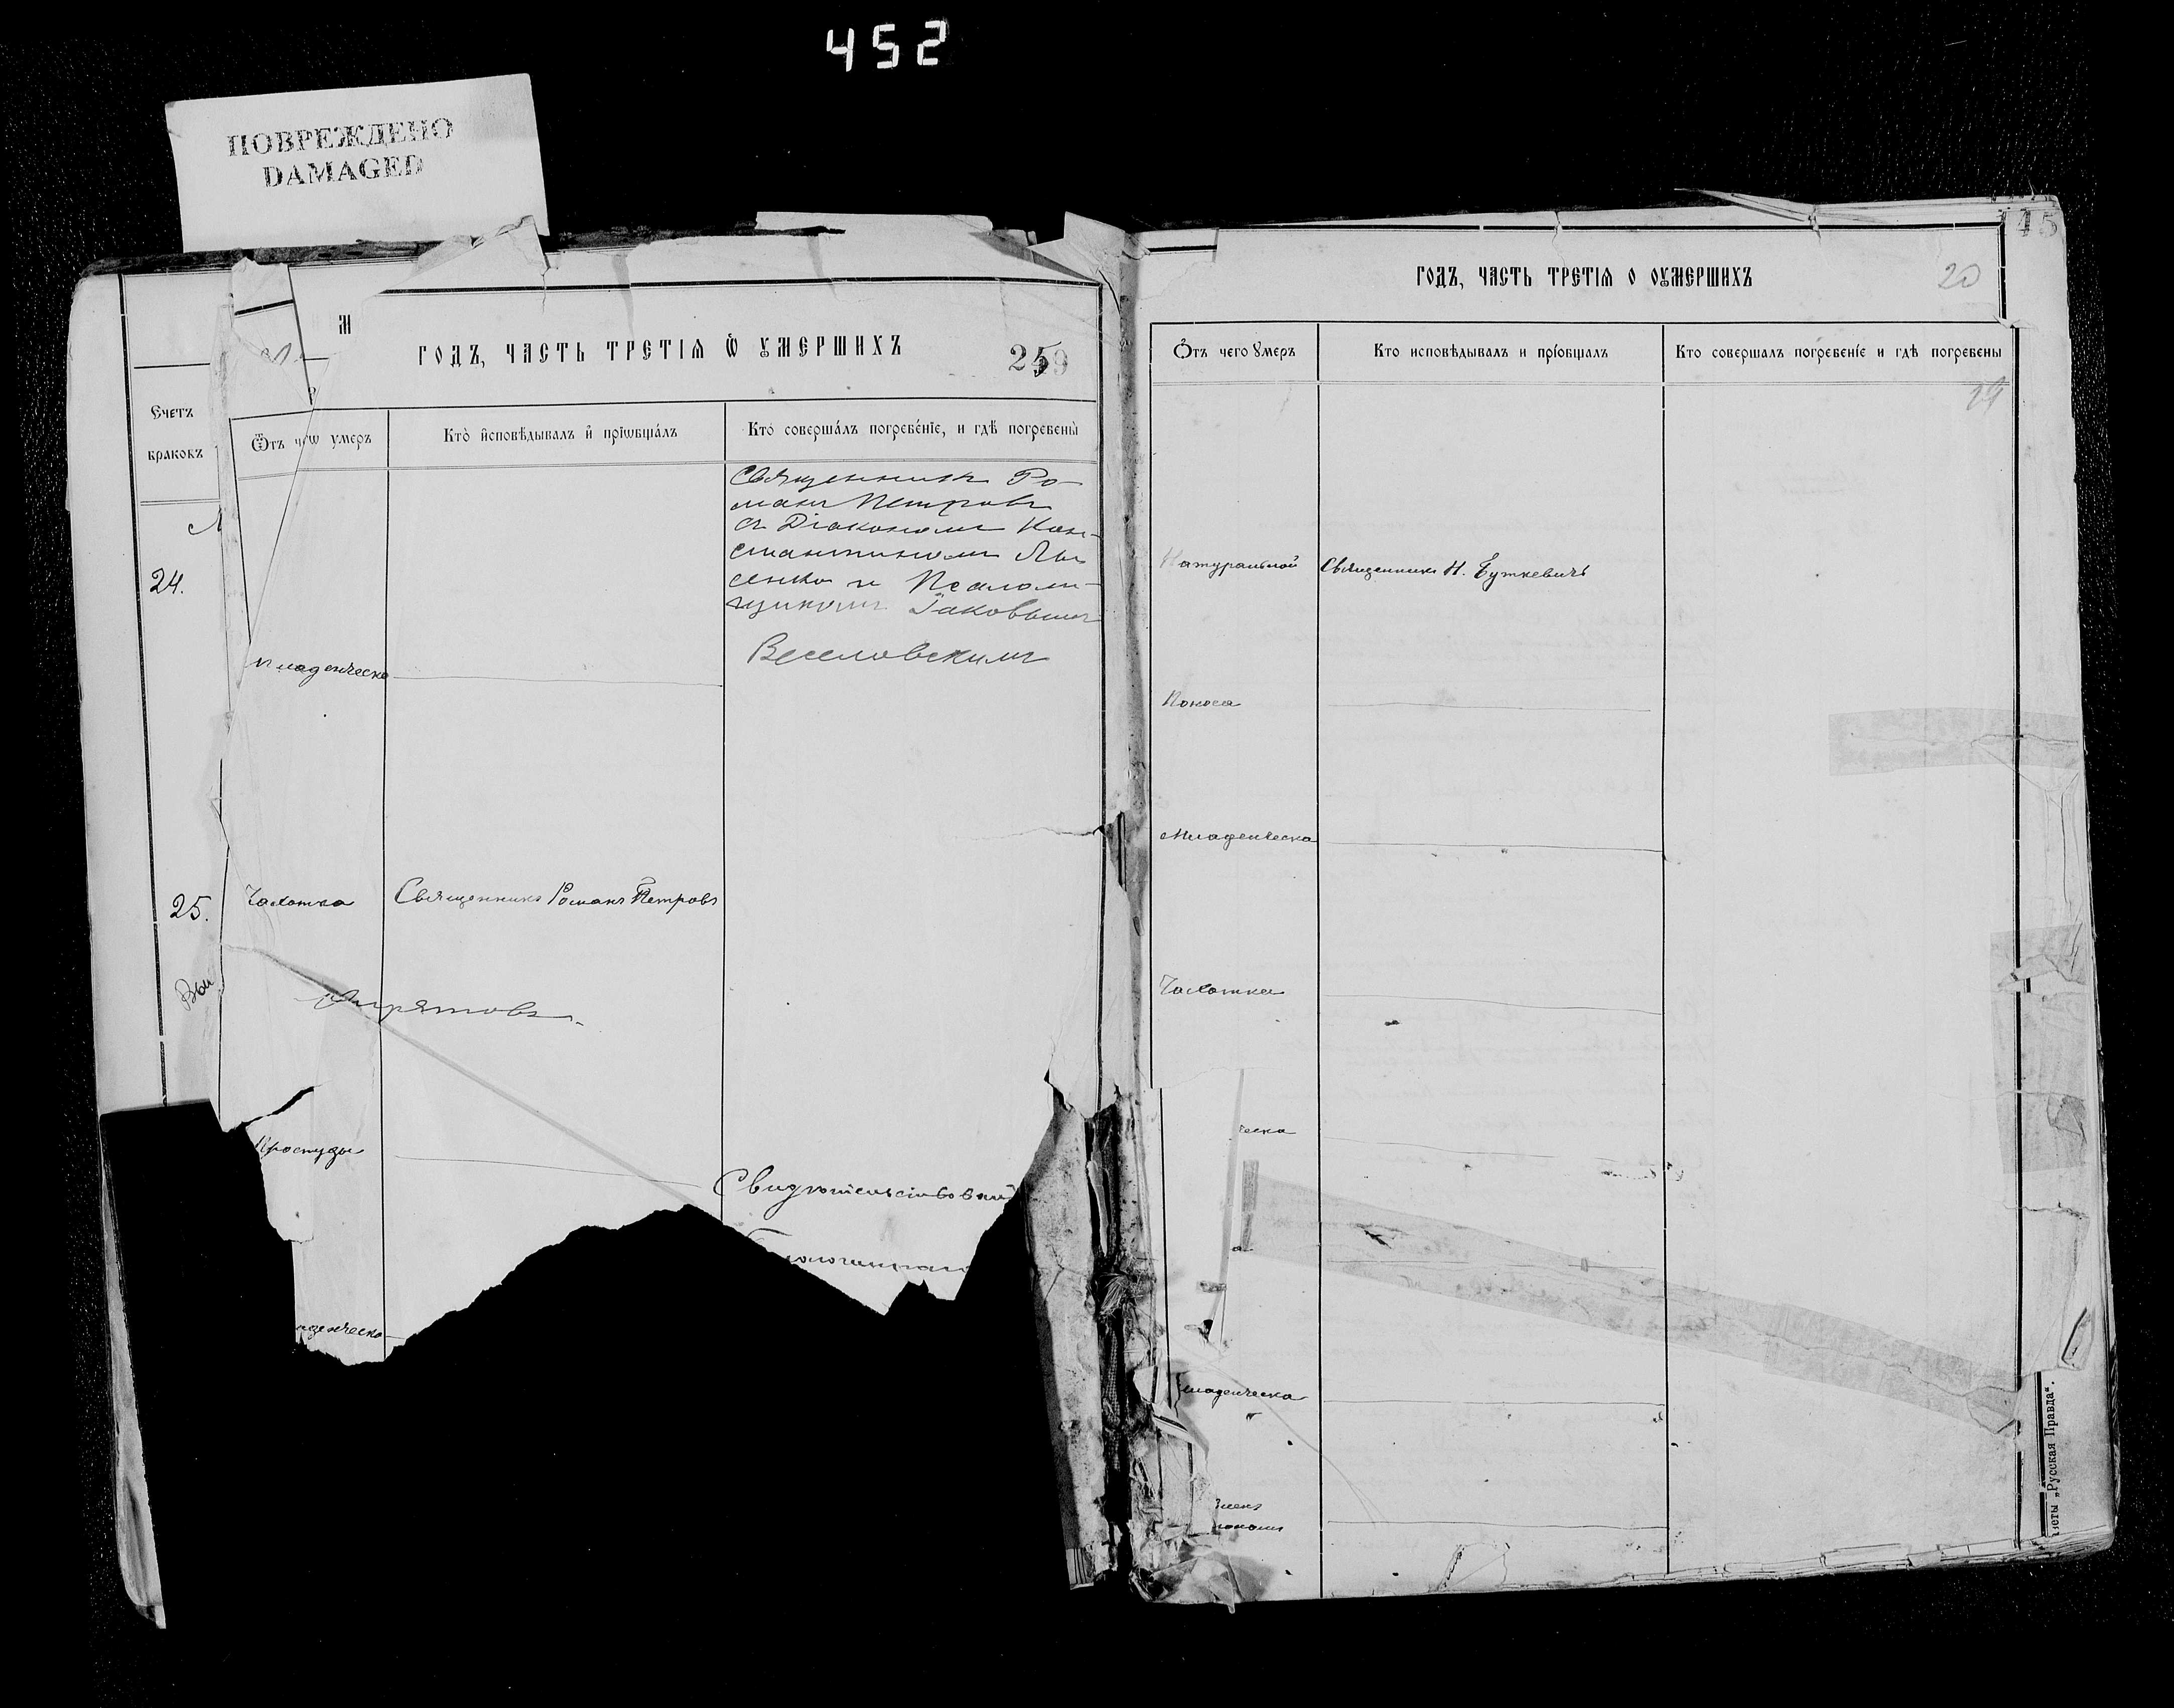 452
ПОВРЕЖДЕНО
DAMAGED
Счетъ
браковъ
24.
25.
Вы
М
ГОДЪ, ЧАСТЬ ТРЕТІѦ Ѡ УМЕРШИХЪ
259
Ѿтъ чегѡ умеръ
Кто̀ и҆сповѣдывалъ и҆ прїѡбщáлъ
Кто́ совершáлъ погребéнїе, и гдѣ̀ погребены̀
Священникъ Ро-
манъ Петровъ
съ Діакономъ Кон-
стантиномъ Лы
сенко и Псалом-
щикомъ Іаковымъ
Веселовскимъ
Младенческа
Чахотка
Священникъ Романъ Петровъ
Простуды
Свидѣтельствовалъ
денческа
145
ГОДЪ, ЧАСТЬ ТРЕТІѦ О ОУМЕРШИХЪ
20
Ѿтъ чего Умеръ
Кто исповѣдывалъ и прїобщалъ
Кто совершалъ погребенїе и гдѣ погребены
Натуральной
Священникъ Н. Буткевичъ
Поноса
Младенческа
Чахотка
ческа
Младенческа
исты „Русская Правда“.